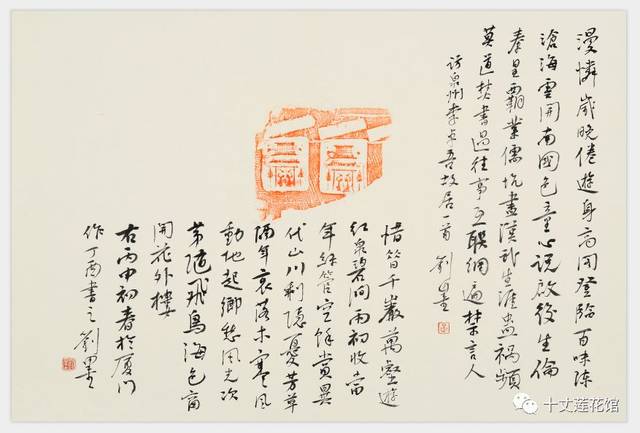 漫憐歲晚倦遊身高閣登臨百味陳
滄海雲開南國色童心說啟後生倫
秦皇霸業儒坑盡漢武生涯蠱禍頻
莫道焚書過往事互聯網遍禁言人
訪泉州李卓吾故居一首 劉墨
昔千巖萬壑遊
紅泉碧澗雨初收當
年絲管空餘賞異
代山川剩隱憂芳草
隔年哀落木寒風
動地起鄉愁風光次
第隨飛鳥海色窗
開花外樓
右丙申初春於廈門
作丁酉書之 劉墨
十丈莲花馆